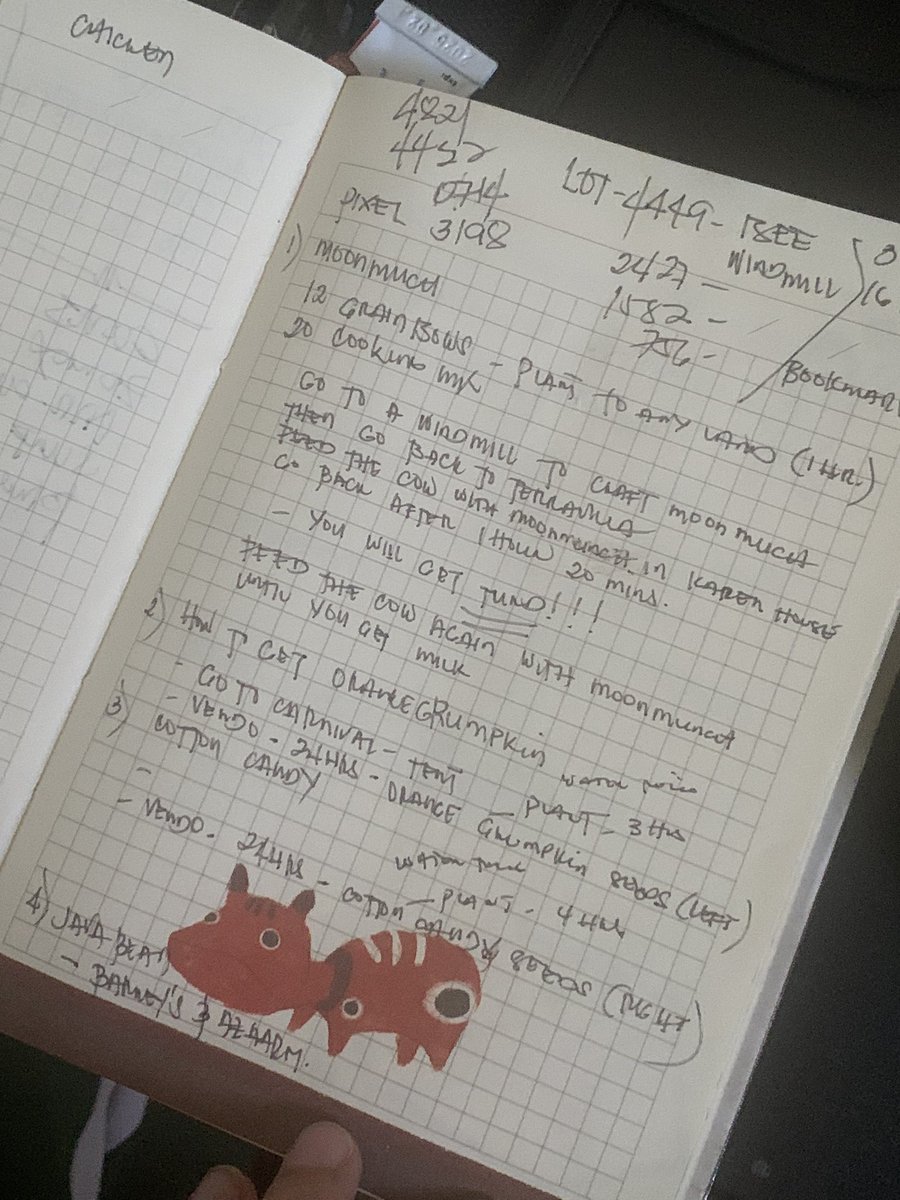 CHICKEN
482
4452
0714
PIXEL 3198
LOT - 4449 - BEE
2427 - WINDMILL
1582 -
756 -
8
16
BOOKMAR
1) MOONMUCH
12 GRAINBOWS - PLANT TO ANY LAND (1 HR.)
20 COOKING MIX
GO TO A WINDMILL TO CRAFT MOONMUCH
THEN GO BACK TO TERRAVILLA
FEED THE COW WITH MOONMUNCH IN KAREN HOUSE
GO BACK AFTER 1 HOUR 20 MINS.
- YOU WILL GET !!!
FEED THE COW AGAIN WITH MOONMUNCH
UNTIL YOU GET MILK
2) HOW TO GET ORANGE GRUMPKIN
- GO TO CARNIVAL - TENT - PLANT - 3 HRS
- VENDO - 24HRS - ORANGE GRUMPKIN SEEDS (LEFT)
3) COTTON CANDY
- PLANT - 4 HRS
- VENDO - 24HRS - COTTON CANDY SEEDS (RIGHT)
4) JAVA BEAN
- BARNEY'S